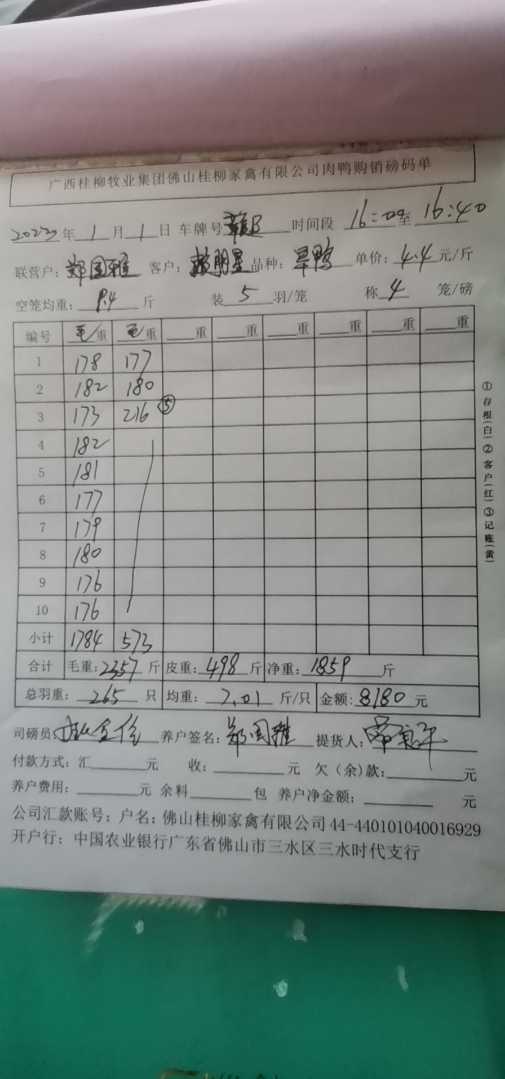 广西桂柳牧业集团佛山桂柳家禽有限公司肉鸭购销磅码单
2023年1月1日 车牌号 时间段 16:00至16:40
联营户：郑国雅 客户： 品种：旱鸭 单价：4.4元/斤
空笼均重：9.4斤 装5羽/笼 称4笼/磅
编号 毛/重 毛重 重 重 重 重 重 重
1 178 177
2 182 180
3 173 216 ⑤
4 182
5 181
6 177
7 179
8 180
9 176
10 176
小计 1784 573
合计 毛重：2357斤 皮重：498斤 净重：1859斤
总羽重：265只 均重：7.01斤/只 金额：8180元
司磅员 养户签名：郑国雅 提货人：
付款方式：汇 元 收： 元 欠（余）款： 元
养户费用： 元 余料 包 养户净金额： 元
公司汇款账号；户名：佛山桂柳家禽有限公司44-440101040016929
开户行：中国农业银行广东省佛山市三水区三水时代支行
①存根(白)②客户(红)③记账(黄)